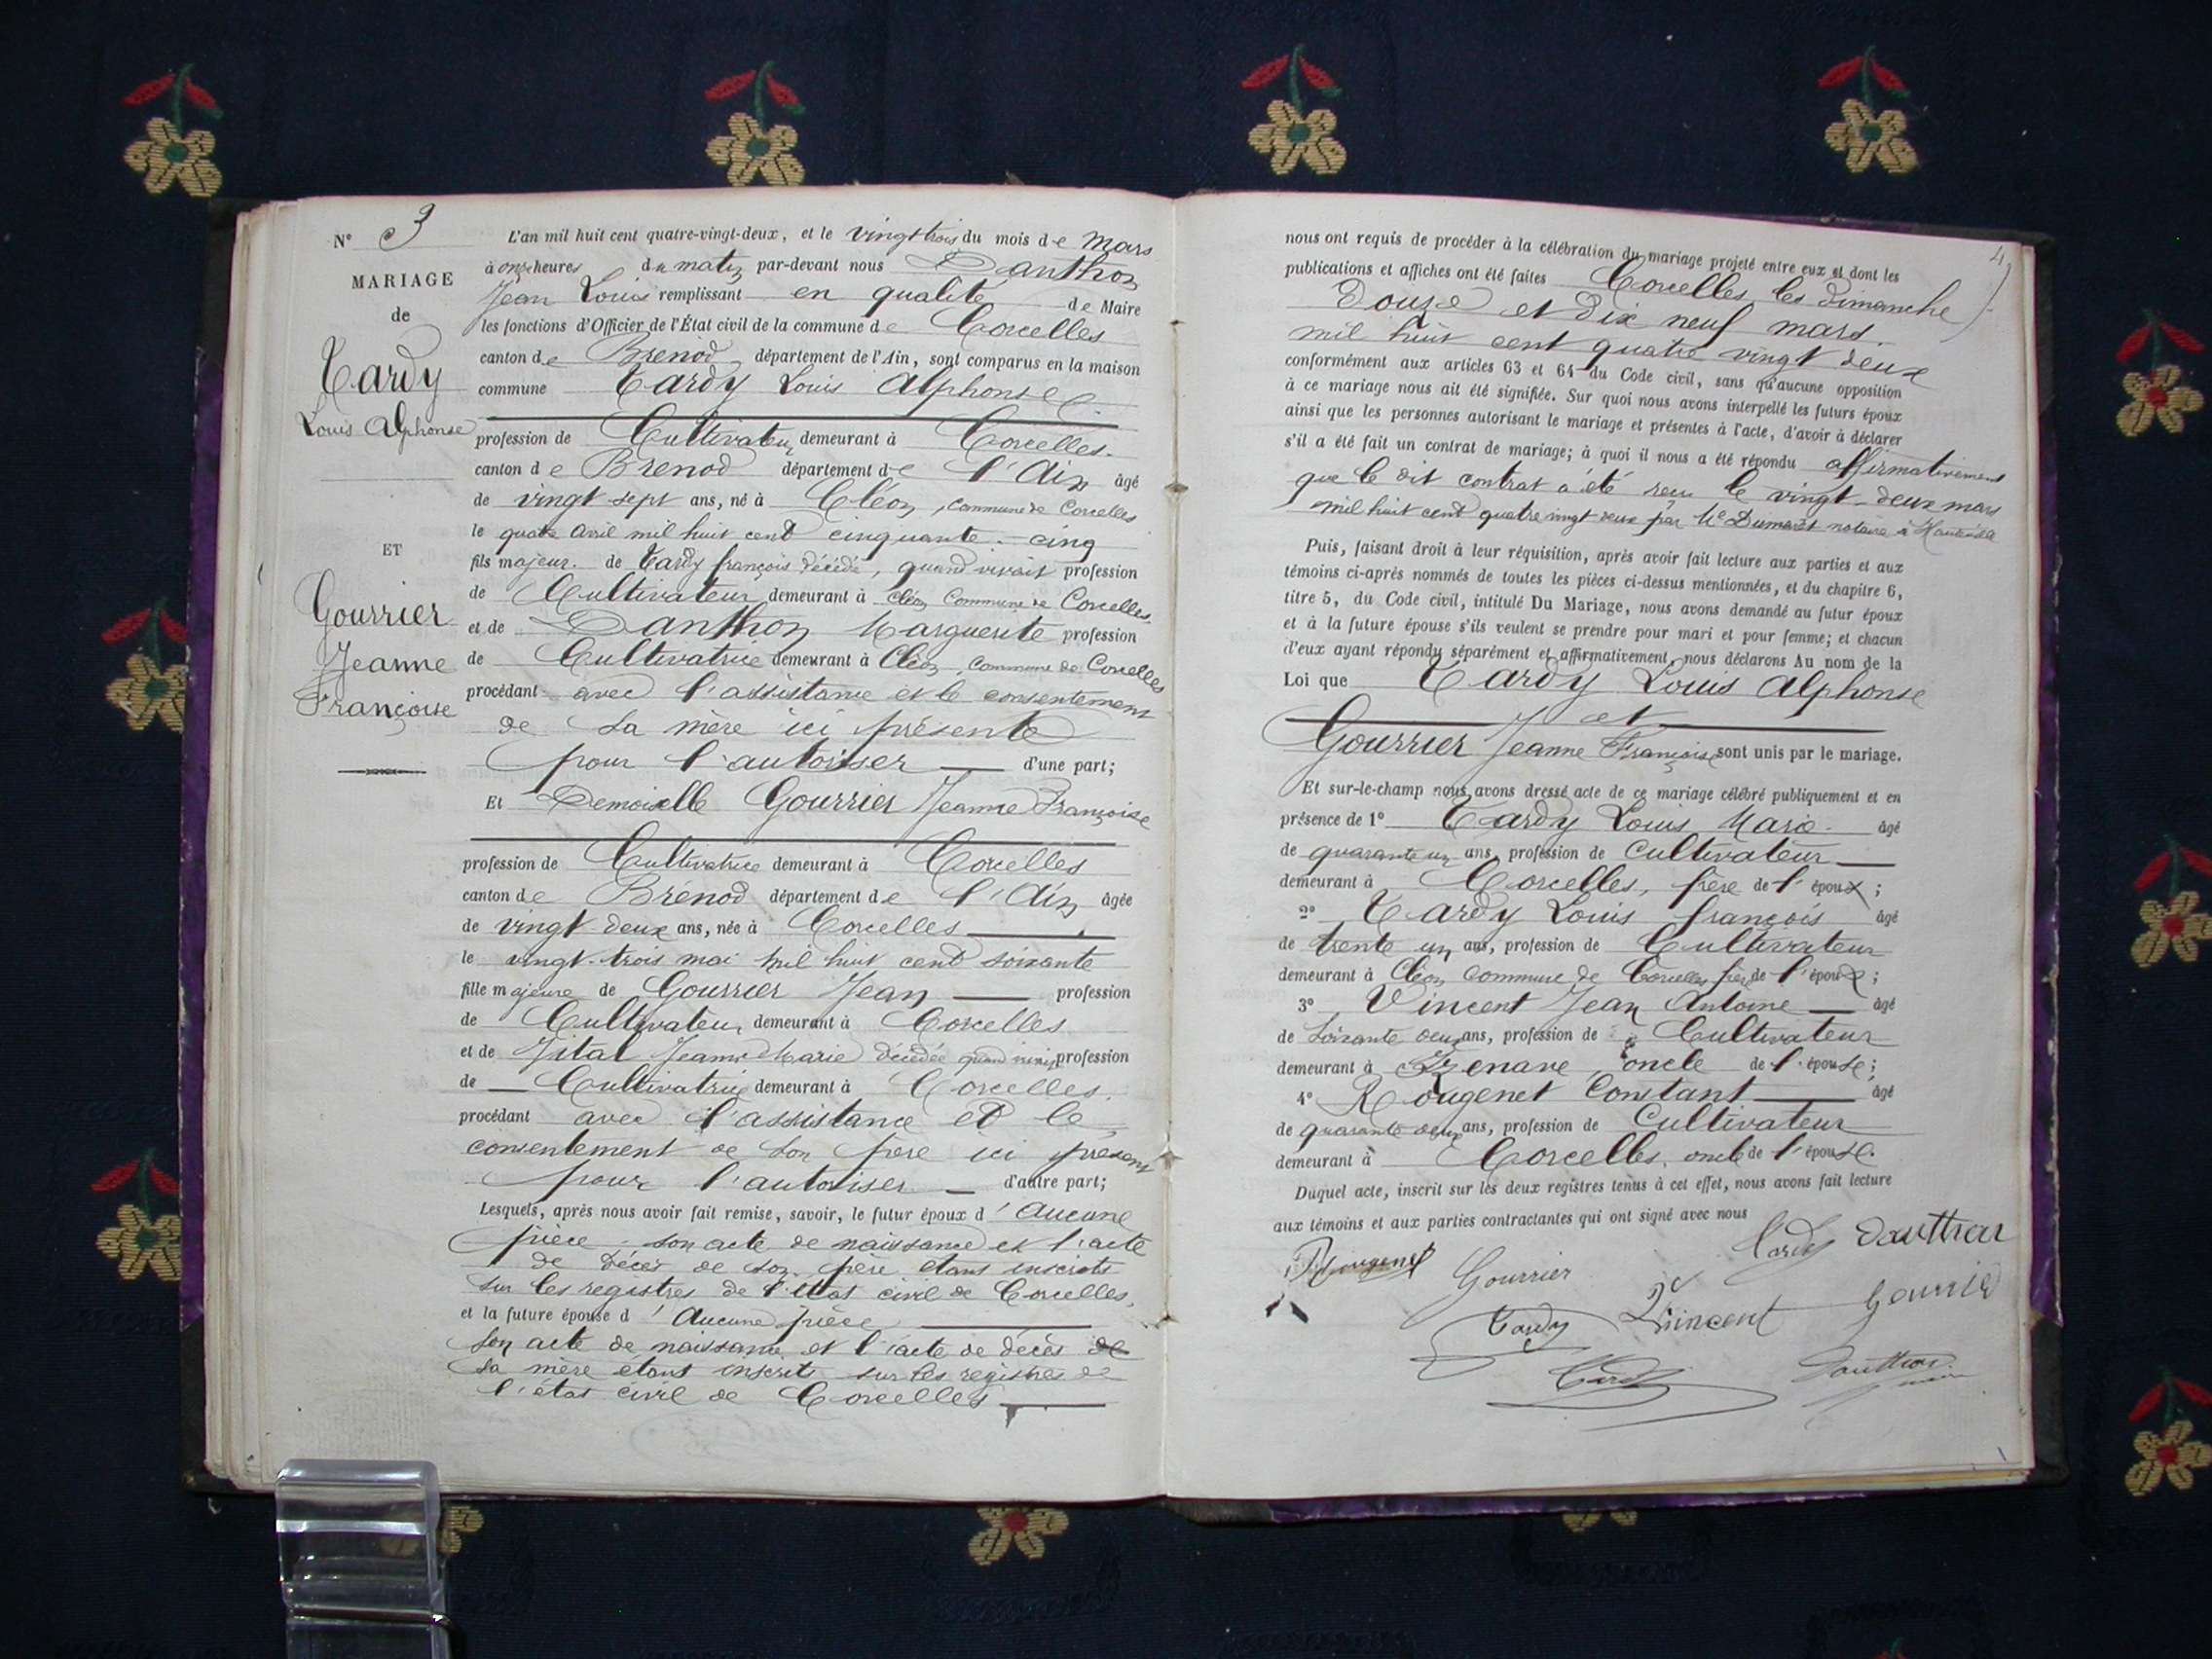 N° 3
MARIAGE
de
Tardy
Louis Alphonse
ET
Gourrier
Jeanne
Françoise
L'an mil huit cent quatre-vingt-deux, et le vingt trois du mois de Mars
à onze heures du matin par-devant nous Danthon
Jean Louis remplissant en qualité de Maire
les fonctions d'Officier de l'État civil de la commune de Corcelles
canton de Brenod, département de l'Ain, sont comparus en la maison
commune Tardy Louis Alphonse
profession de Cultivateur demeurant à Corcelles.
canton de Brenod département de l'Ain âgé
de vingt sept ans, né à Cléon, commune de Corcelles
le quatre Avril mil huit cent cinquante-cinq
fils majeur. de Tardy françois décédé, quand vivait profession
de Cultivateur demeurant à Cléon Commune de Corcelles.
et de Danthon Marguerite profession
de Cultivatrice demeurant à Cléon, commune de Corcelles
procédant avec l'assistance et le consentement
de sa mère ici présente
pour l'autoriser d'une part;
Et Demoiselle Gourrier Jeanne Françoise
profession de Cultivatrice demeurant à Corcelles
canton de Brenod département de l'Ain âgée
de vingt-deux ans, née à Corcelles
le vingt-trois mai mil huit cent soixante
fille majeure de Gourrier Jean profession
de Cultivateur demeurant à Corcelles
et de Vital Jeanne Marie décédée quand vivait profession
de Cultivatrice demeurant à Corcelles.
procédant avec l'assistance et le
consentement de son père ici présent
pour l'autoriser d'autre part;
Lesquels, après nous avoir fait remise, savoir, le futur époux d'Aucune
pièce. son acte de naissance et l'acte
de décès de son père étant inscrits
sur les registres de l'état civil de Corcelles,
et la future épouse d'Aucune pièce
son acte de naissance et l'acte de décès de
sa mère étant inscrits sur les registres de
l'état civil de Corcelles
4
nous ont requis de procéder à la célébration du mariage projeté entre eux et dont les
publications et affiches ont été faites Corcelles les dimanche
Douze et Dix neuf mars.
mil huit cent quatre vingt deux
conformément aux articles 63 et 64 du Code civil, sans qu'aucune opposition
à ce mariage nous ait été signifiée. Sur quoi nous avons interpellé les futurs époux
ainsi que les personnes autorisant le mariage et présentes à l'acte, d'avoir à déclarer
s'il a été fait un contrat de mariage; à quoi il nous a été répondu affirmativement
que le dit contrat a été reçu le vingt-deux mars
mil huit cent quatre vingt deux par Me Dumarêt notaire à Hauteville
Puis, faisant droit à leur réquisition, après avoir fait lecture aux parties et aux
témoins ci-après nommés de toutes les pièces ci-dessus mentionnées, et du chapitre 6,
titre 5, du Code civil, intitulé Du Mariage, nous avons demandé au futur époux
et à la future épouse s'ils veulent se prendre pour mari et pour femme; et chacun
d'eux ayant répondu séparément et affirmativement, nous déclarons Au nom de la
Loi que Tardy Louis Alphonse
et
Gourrier Jeanne Françoise sont unis par le mariage.
Et sur-le-champ nous avons dressé acte de ce mariage célébré publiquement et en
présence de 1° Tardy Louis Marie. âgé
de quarante un ans, profession de Cultivateur
demeurant à Corcelles, frère de l'époux;
2° Tardy Louis françois âgé
de trente un ans, profession de Cultivateur
demeurant à Cléon Commune de Corcelles frère de l'époux;
3° Vincent Jean Antoine âgé
de soixante deux ans, profession de Cultivateur
demeurant à Izenave, oncle de l'épouse;
4° Rougenet Constant âgé
de quarante deux ans, profession de Cultivateur
demeurant à Corcelles. oncle de l'épouse.
Duquel acte, inscrit sur les deux registres tenus à cet effet, nous avons fait lecture
aux témoins et aux parties contractantes qui ont signé avec nous
Tardy Danthon
Rougenet Gourrier
Tardy Vincent Gourrier
Tardy Danthon